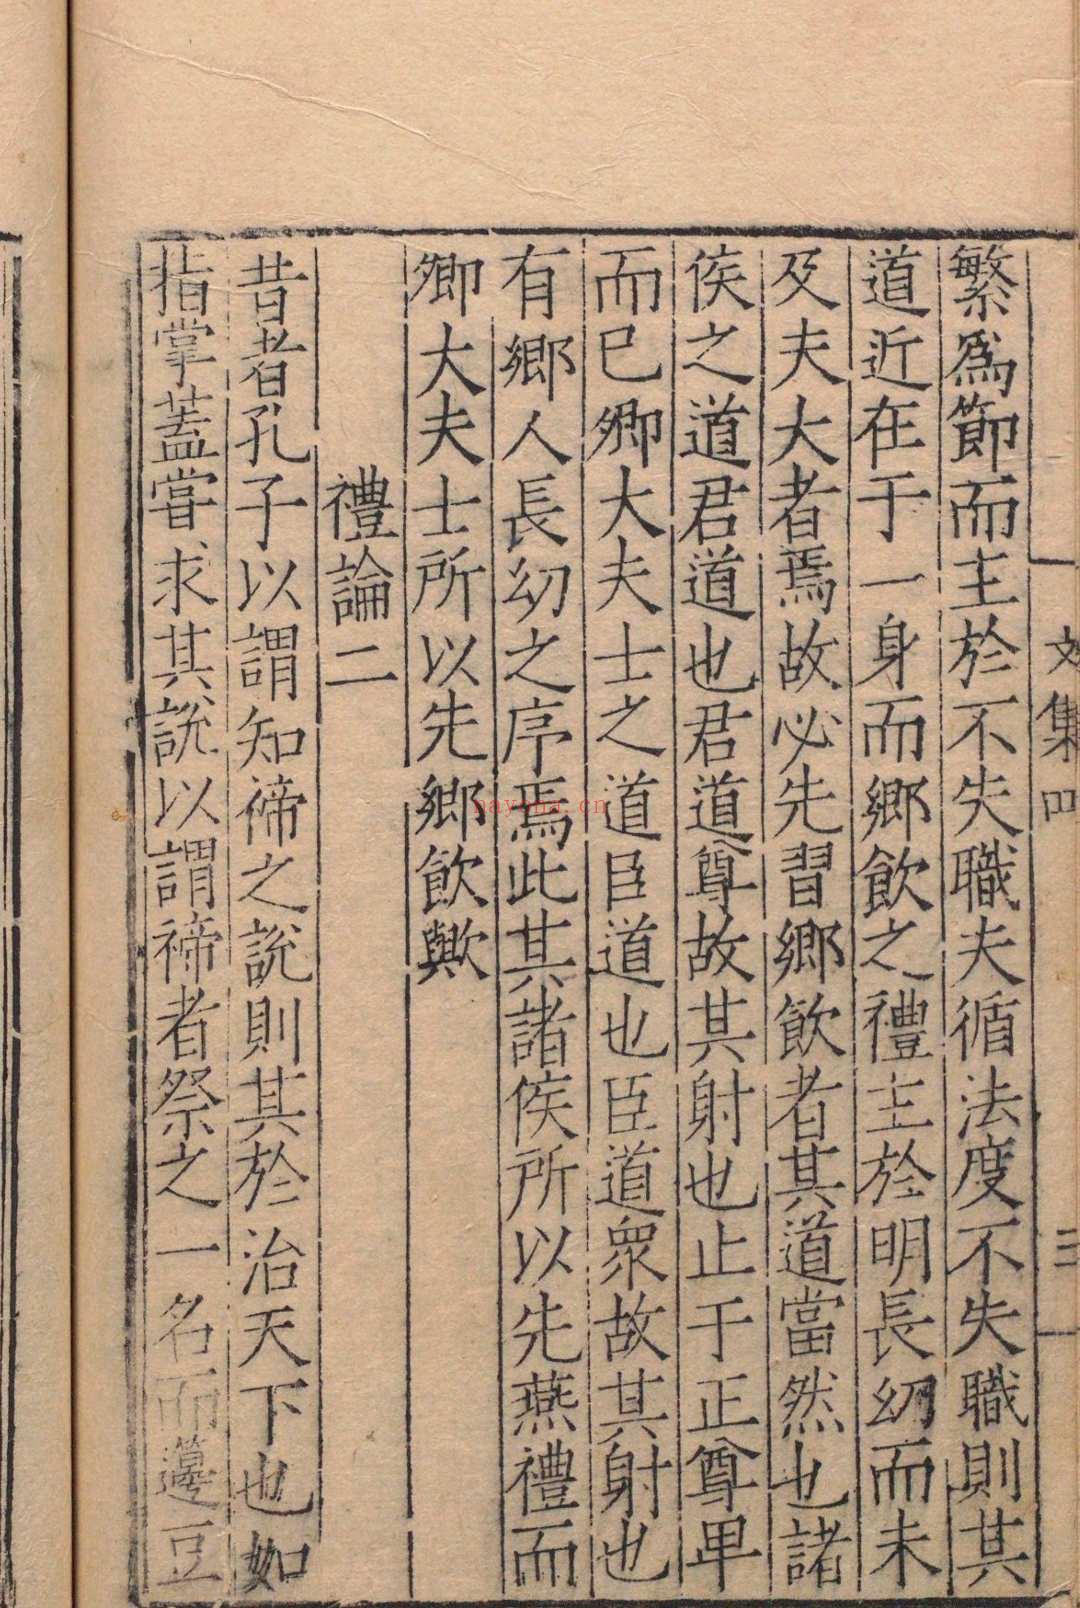 文集四
三
繁爲節而主於不失職夫循法度不失職則其
道近在于一身而鄉飲之禮主於明長幼而未
及夫大者焉故必先習鄉飲者其道當然也諸
侯之道君道也君道尊故其射也止于正尊卑
而巳卿大夫士之道臣道也臣道衆故其射也
有鄉人長幼之序焉此其諸侯所以先燕禮而
卿大夫士所以先鄉飲歟
禮論二
昔者孔子以謂知禘之說則其於治天下也如
指掌蓋嘗求其說以謂禘者祭之一名而籩豆
nayona.cn